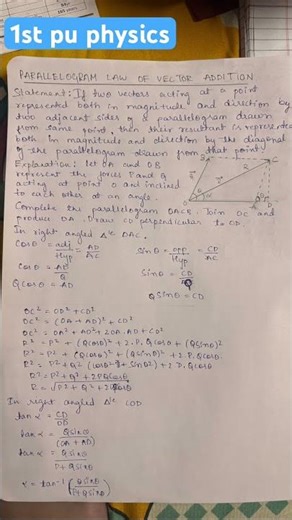 1st pu physics
PARALLELOGRAM LAW OF VECTOR ADDITION
Statement: If two vectors acting at a point
represented both in magnitude and direction by
two adjacent sides of a parallelogram drawn
from same point, then their resultant is represented
both in magnitude and direction by the diagonal
of the parallelogram drawn from that point.
Explanation: let OA and OB
represent the forces P and Q
acting at point O and inclined
to each other at an angle.
Complete the parallelogram OACB. Join OC and
produce OA. Draw CD perpendicular to OD.
In right angled Δle DAC.
Cosθ = adj/Hyp = AD/AC Sinθ = opp/Hyp = CD/AC
Cosθ = AD/Q Sinθ = CD/Q
QCosθ = AD QSinθ = CD
OC² = OD² + CD²
OC² = (OA + AD)² + CD²
OC² = OA² + AD² + 2OA.AD + CD²
R² = P² + (Qcosθ)² + 2.P.Qcosθ + (Qsinθ)²
R² = P² + (Qcosθ)² + (Qsinθ)² + 2.P.Qcosθ
R² = P² + Q² (cos²θ + sin²θ) + 2.P.Qcosθ
R² = P² + Q² + 2PQcosθ
R = √P² + Q² + 2PQcosθ
In right angled Δle COD
tanα = CD/OD
tanα = Qsinθ/(OA + AD)
tanα = Qsinθ/P+Qsinθ
α = tan⁻¹ (Qsinθ/P+Qsinθ)